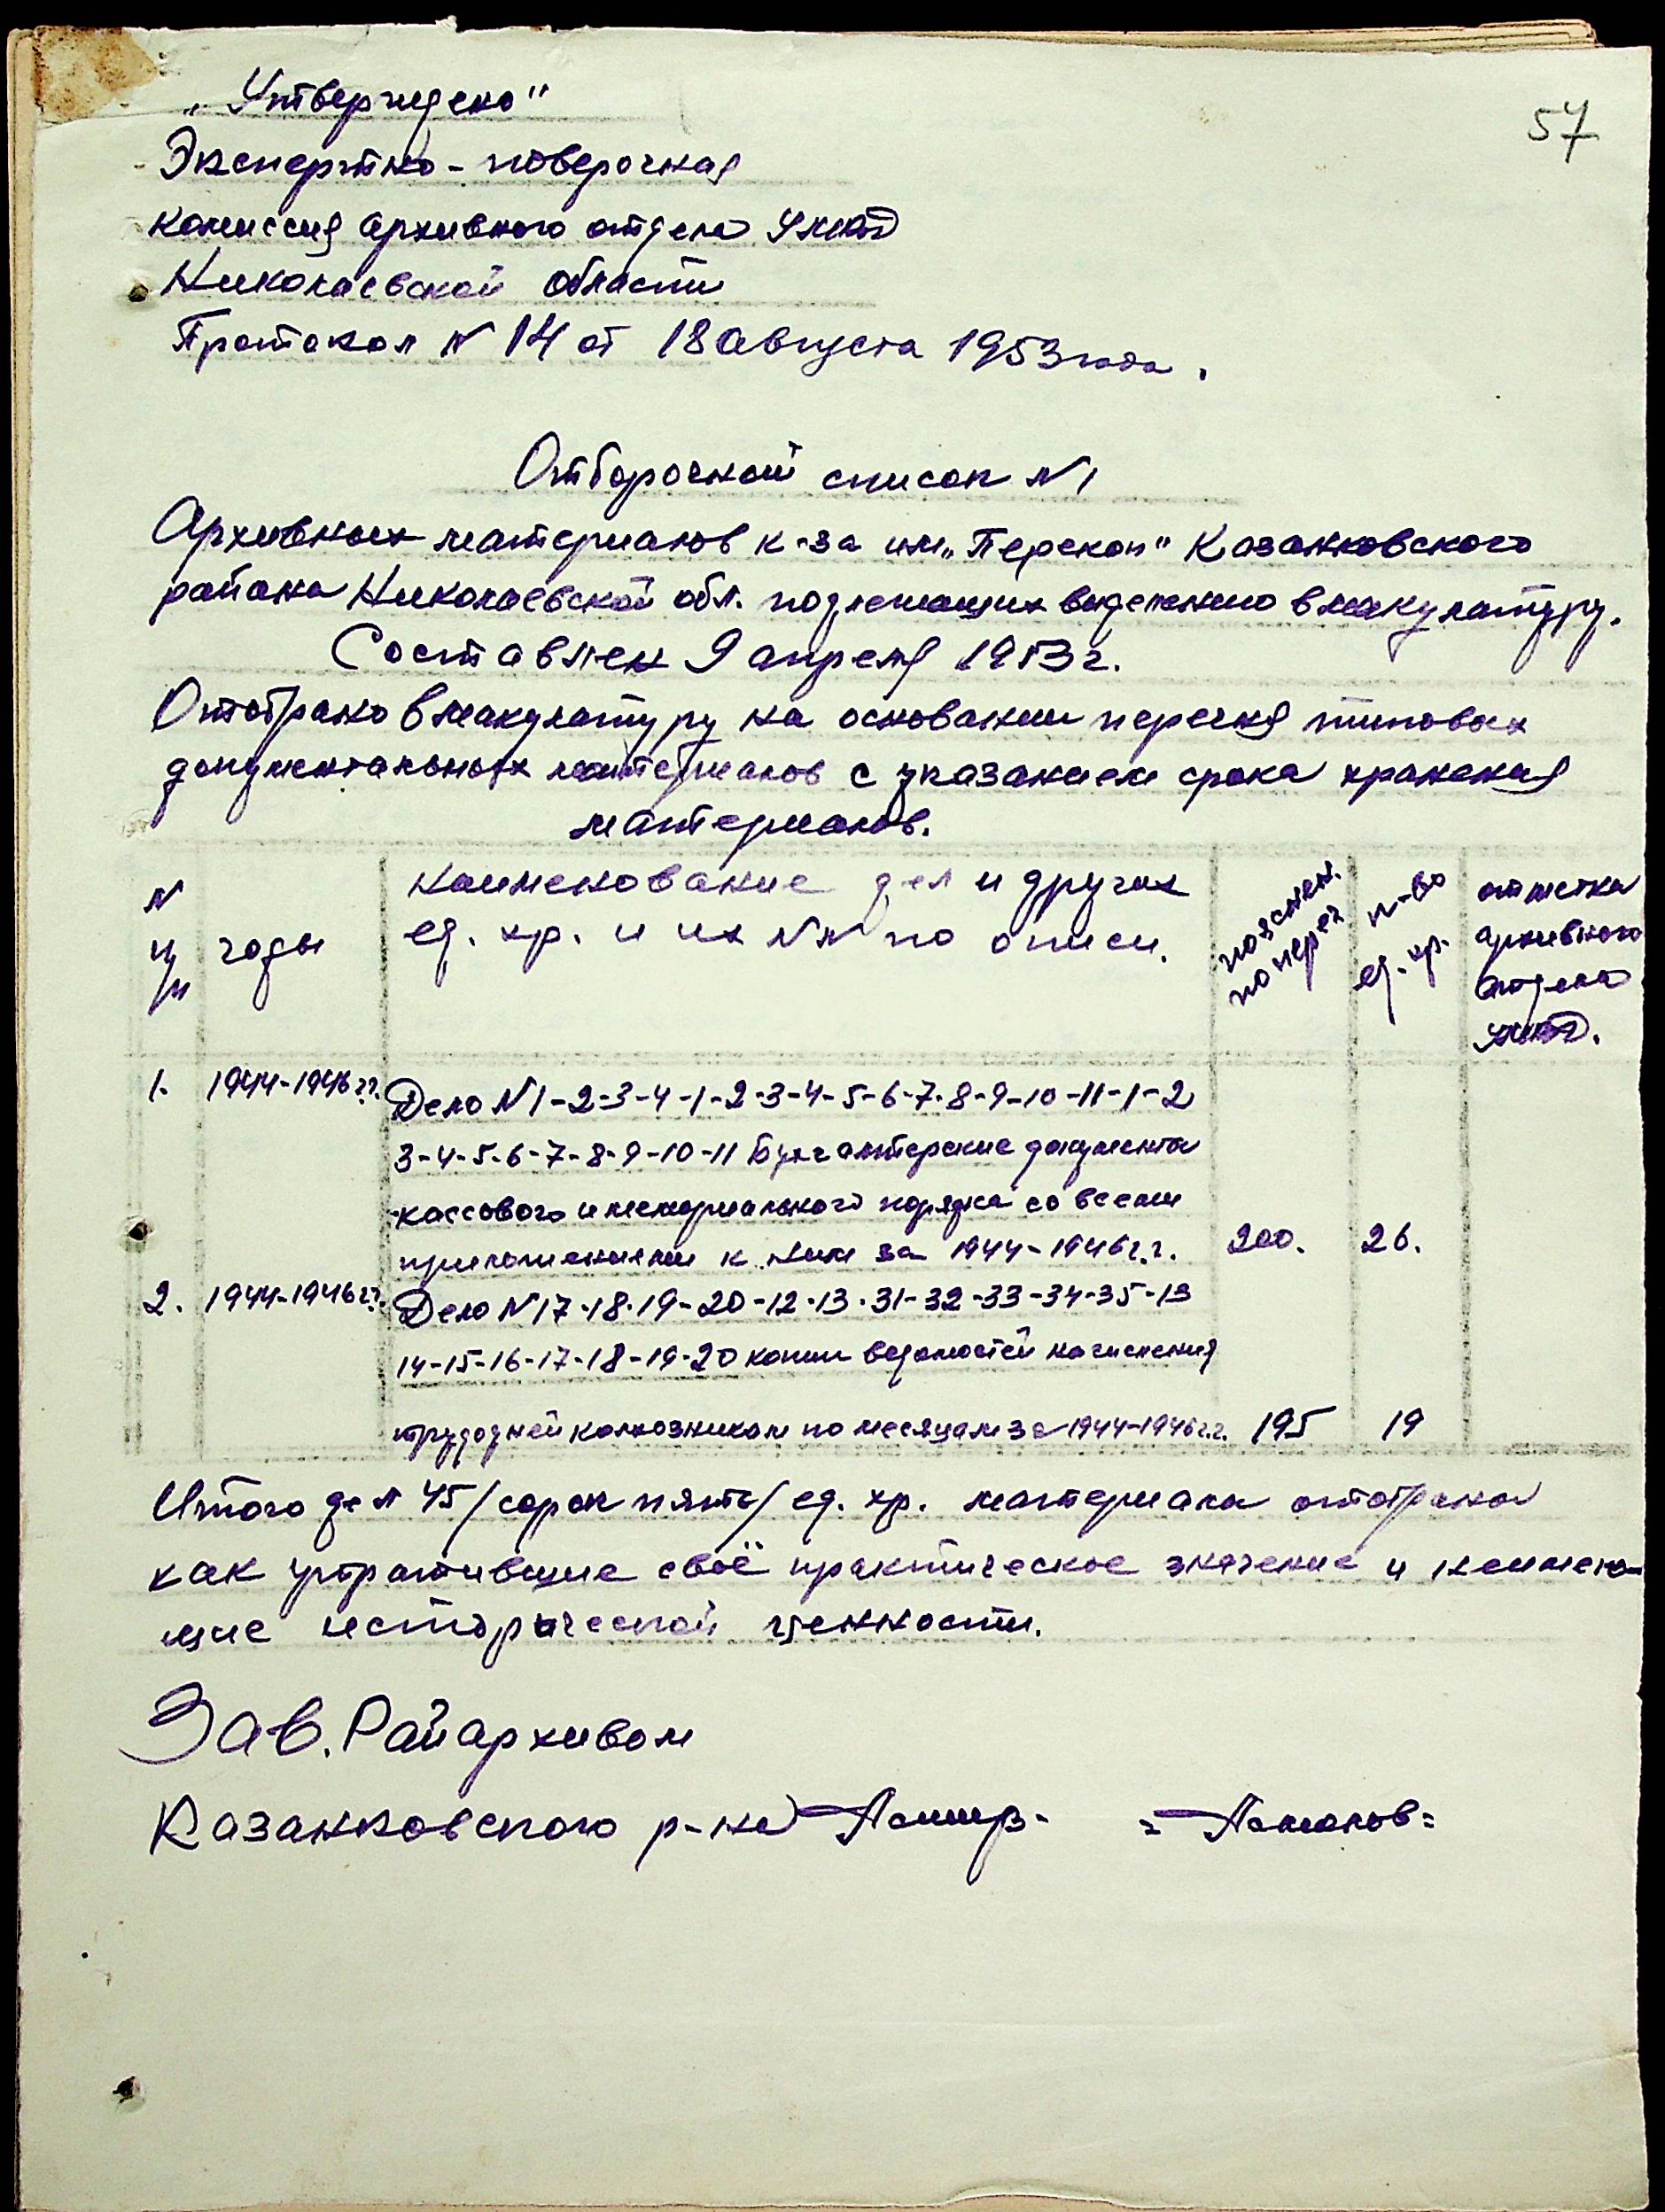 57
„Утверждено"
Экспертно-поверочная
комиссия архивного отдела УМВД
Николаевской области
Протокол N 14 от 18 августа 1953 года.
Отборочной список N 1
Архивных материалов к-за им „Перекоп" Казанковского
района Николаевской обл. подлежащих выделению в макулатуру.
Составлен 9 апреля 1953 г.
Отобрано в макулатуру на основании перечня типовых
документальных материалов с указанием срока хранения
материалов.
N п/п
годы
наименование дел и других
ед. хр. и их NN по описи.
пояснен. по переч
к-во ед. хр.
отметка
архивного
отдела
УМВД.
1. 1944-1946 г.г. Дело N 1-2-3-4-1-2-3-4-5-6-7-8-9-10-11-1-2
3-4-5-6-7-8-9-10-11 Бухгалтерские документы
кассового и мемориального порядка со всеми
приложениями к ним за 1944-1946 г.г. 200. 26.
2. 1944-1946 г.г. Дело N 17-18-19-20-12-13-31-32-33-34-35-13
14-15-16-17-18-19-20 копии ведомостей начисления
трудодней колхозникам по месяцам за 1944-1946 г.г. 195 19
Итого дел 45 /сорок пять/ ед. хр. материала отобрано
как утратившие своё практическое значение и неимею-
щие исторической ценности.
Зав. Райархивом
Казанковского р-на